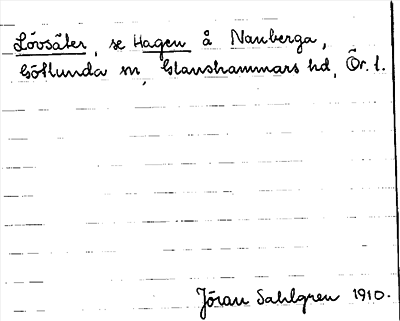 Lövsäter, se Hagen å Nanberga,
Götlunda sn, Glanshammars hd, Ör. l.
Jöran Sahlgren 1910.